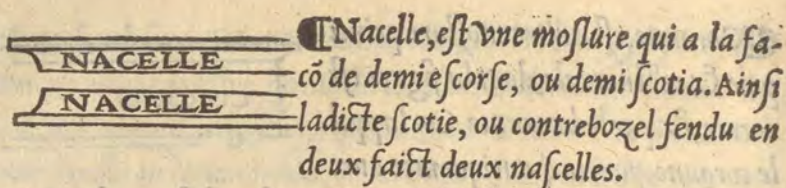 NACELLE
NACELLE
¶Nacelle, eſt vne moſlure qui a la fa-
cõ de demi eſcorſe, ou demi ſcotia. Ainſi
ladicte ſcotie, ou contrebozel fendu en
deux faict deux naſcelles.